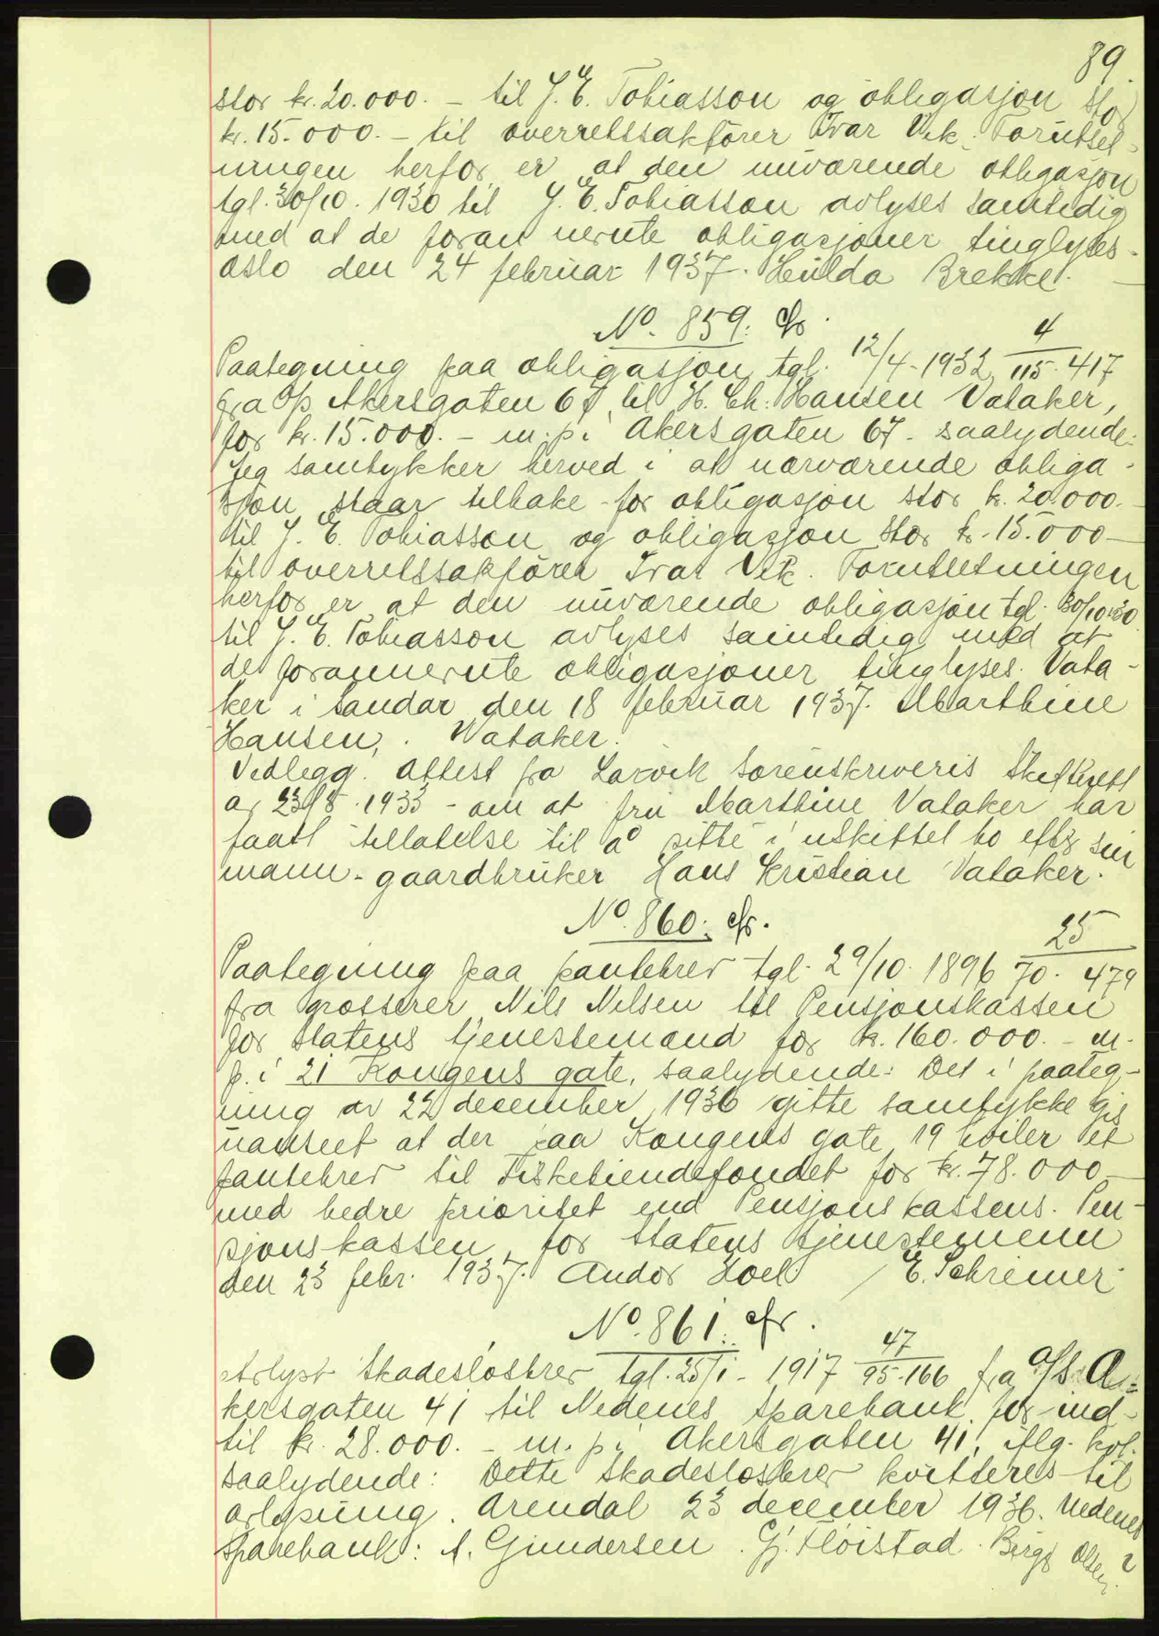 89.
stor kr. 20.000. - til J. E. Tobiasson og obligasjon stor
kr. 15.000. - til overrettssakfører Ivar Vik. Forutset-
ningen herfor er at den nuværende obligasjon
tgl. 30/10. 1930 til J. E. Tobiasson avlyses samtidig
med at de foran nevnte obligasjoner tinglyses.
Oslo den 24 februar 1937. Hulda Brekke. -
No. 859: cfr.
Paategning paa obligasjon tgl. 12/4-1932 4/115-417
fra A/S Akersgaten 67 til H. Chr. Hansen Vataker,
for kr. 15.000. - m. p. i Akersgaten 67 - saalydende:
Jeg samtykker herved i at nærværende obliga-
sjon staar tilbake for obligasjon stor kr. 20.000. -
til J. E. Tobiasson og obligasjon stor kr. 15.000 -
til overrettssakfører Ivar Vik. Forutsetningen
herfor er at den nuværende obligasjon tgl. 30/10-30
til J. E. Tobiasson avlyses samtidig med at
de forannevnte obligasjoner tinglyses. Vata-
ker i Sandar den 18 februar 1937. Marthine
Hansen, . Wataker.
Vedlegg: Attest fra Larvik Sorenskriveris Skifterett
av 23/8-1933 - om at fru Marthine Vataker har
faatt tillatelse til å sitte i uskiftet bo efter sin
mann - gaardbruker Hans Kristian Vataker.
No. 860: cfr.
Paategning paa pantebrev tgl. 29/10. 1896 25/70-479
fra grosserer Nils Nilsen til Pensjonskassen
for statens tjenestemænd for kr. 160.000. - m.
p. i 21 Kongens gate, saalydende: Det i paateg-
ning av 22 december 1936 gitte samtykke gis
uanseet at der paa Kongens gate 19 hviler et
pantebrev til Fisketiendefondet for kr. 78.000 -
med bedre prioritet end Pensjonskassens. Pen-
sjonskassen for statens tjenestemenn
den 23 febr. 1937. Andor Hoel / E. Schreiner.
No. 861: cfr.
Avlyst Skadesløsbrev tgl. 25/1- 1917 47/95-166 fra A/S A-
kersgaten 41 til Nedenes Sparebank for ind-
til kr. 28.000. - m. p. i Akersgaten 41,
saalydende: Dette skadesløsbrev kvitteres til
avlysning. Arendal 23 december 1936. Nedenes
Sparebank: A. Gundersen. Gj. Fløistad. Birger Olsen.